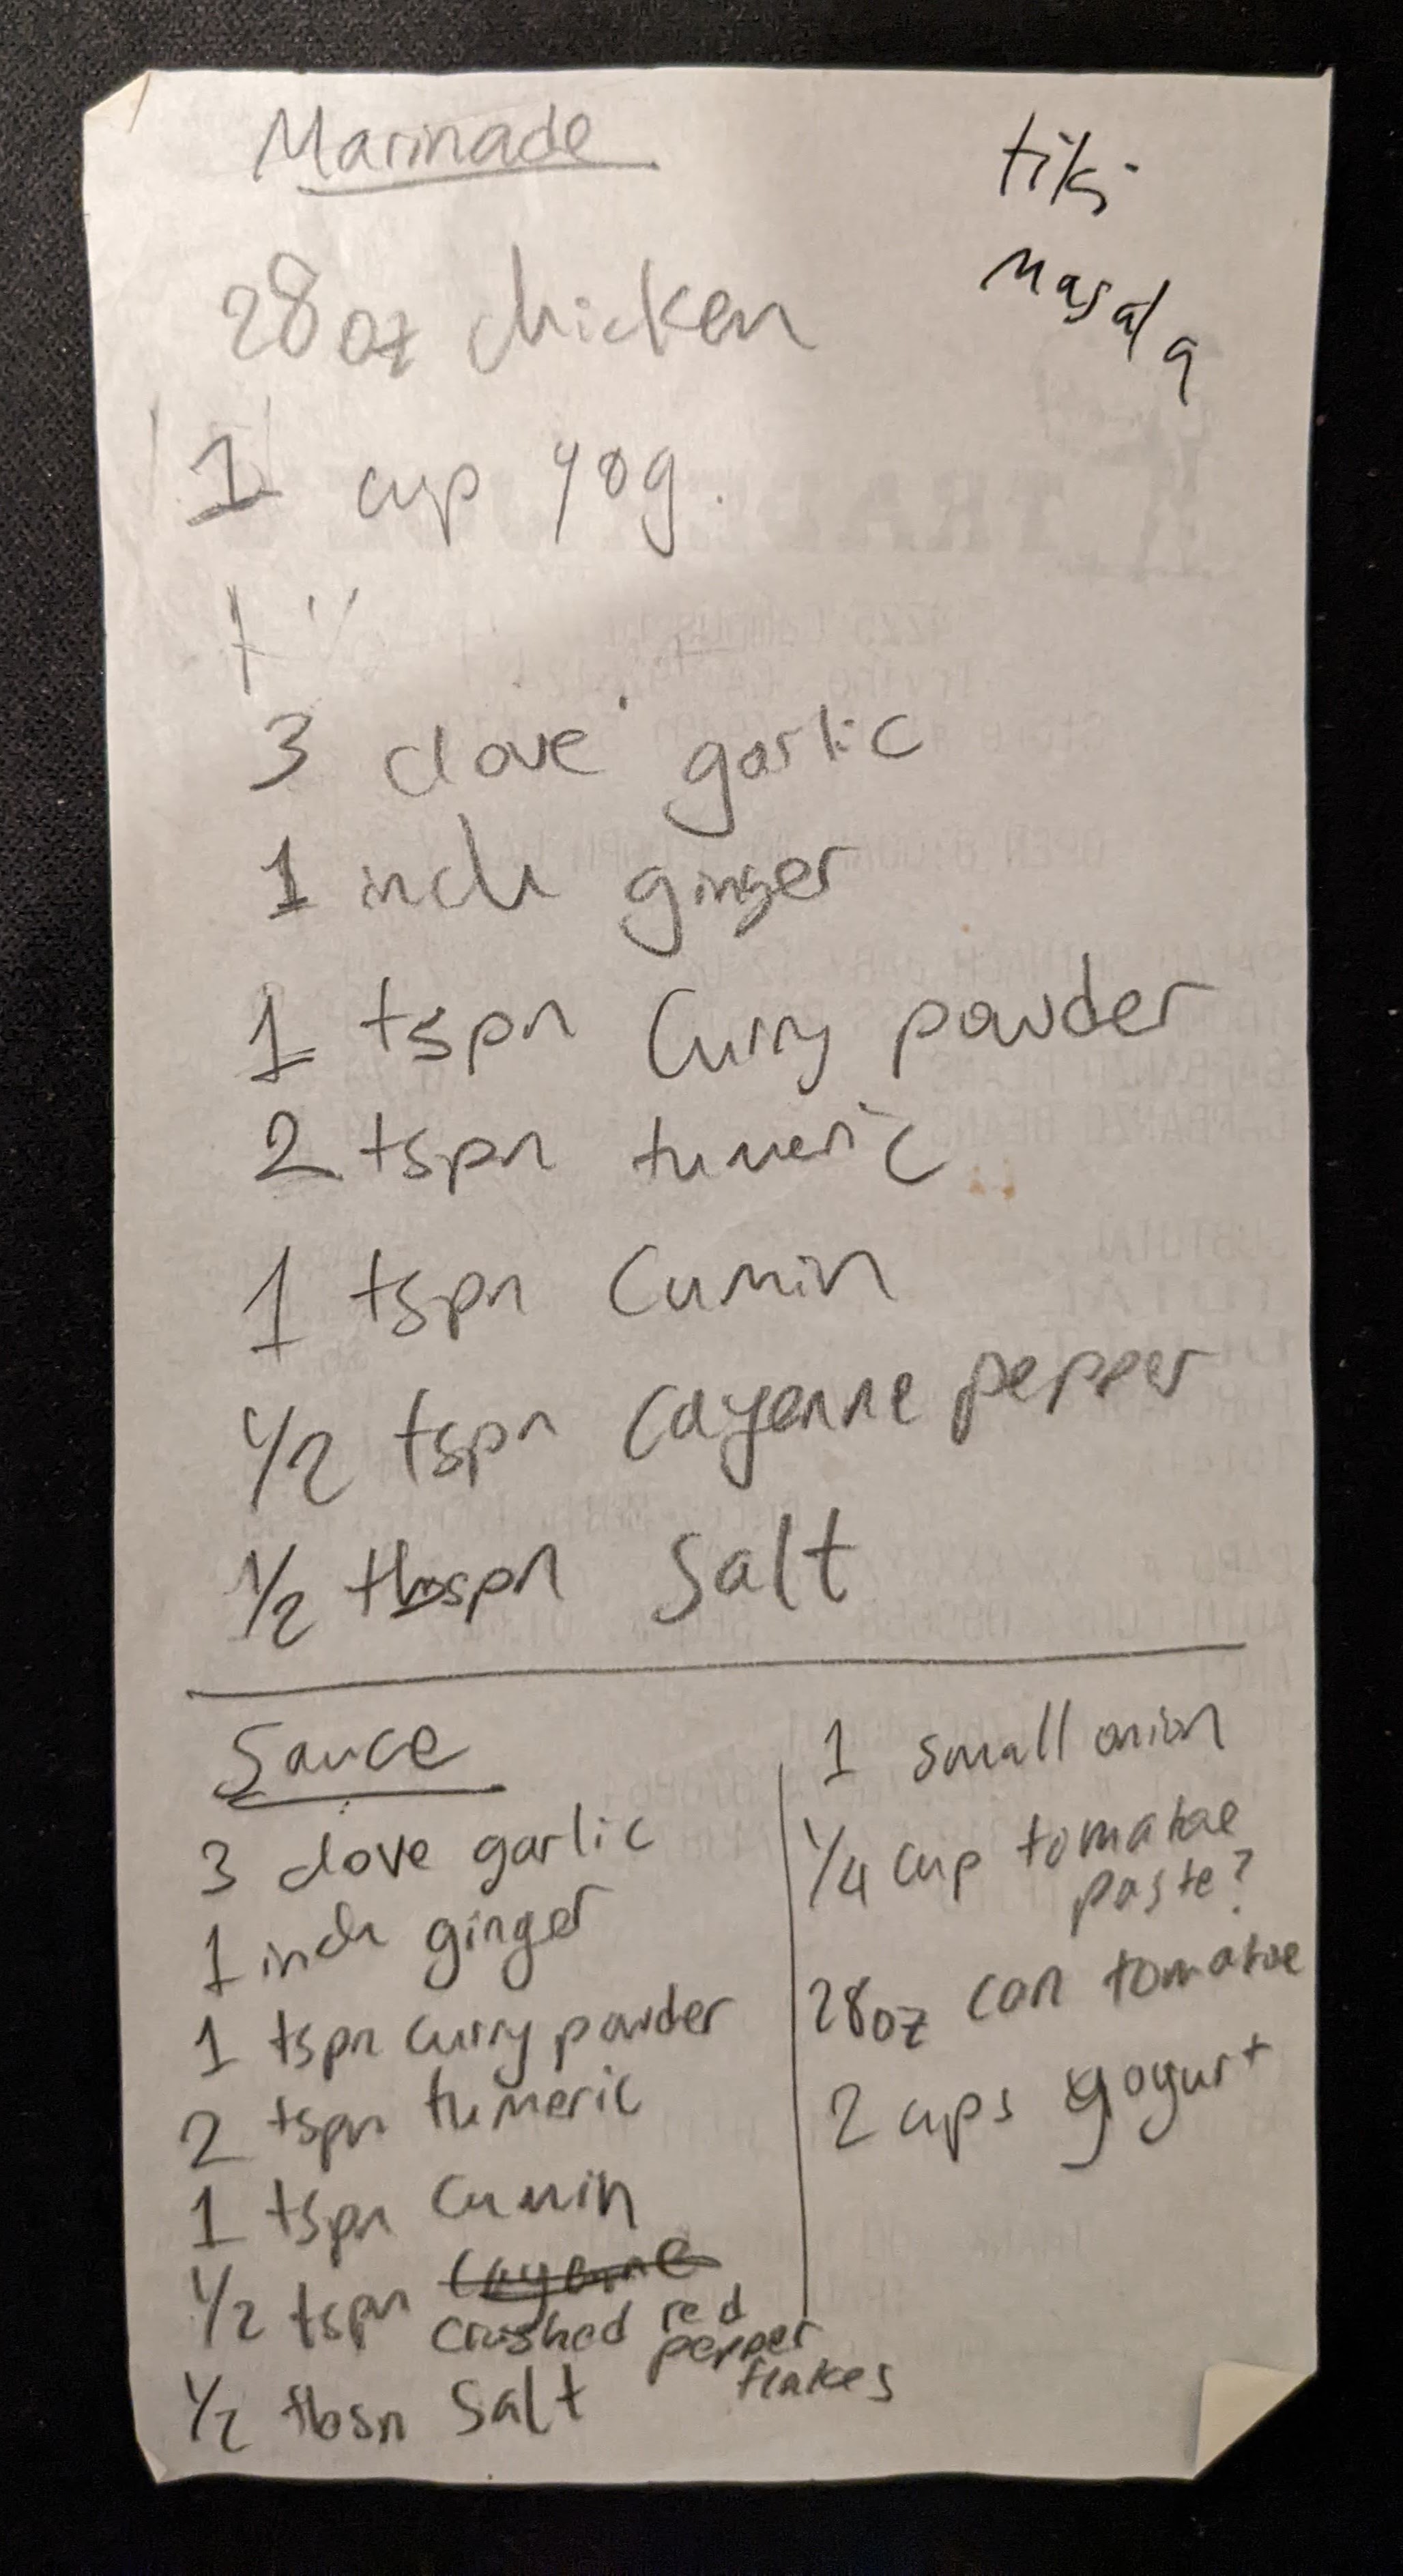 Marinade
tiki
masala
28oz chicken
1 cup yog.
3 clove garlic
1 inch ginger
1 tspn Curry powder
2 tspn tumeric
1 tspn Cumin
1/2 tspn Cayenne pepper
1/2 tbspn Salt
Sauce
3 clove garlic
1 inch ginger
1 tspn curry powder
2 tspn tumeric
1 tspn Cumin
1/2 tspn Cayenne
crushed red
pepper
flakes
1/2 tbsn Salt
1 small onion
1/4 cup tomatoe
paste?
28oz can tomatoe
2 cups yogurt